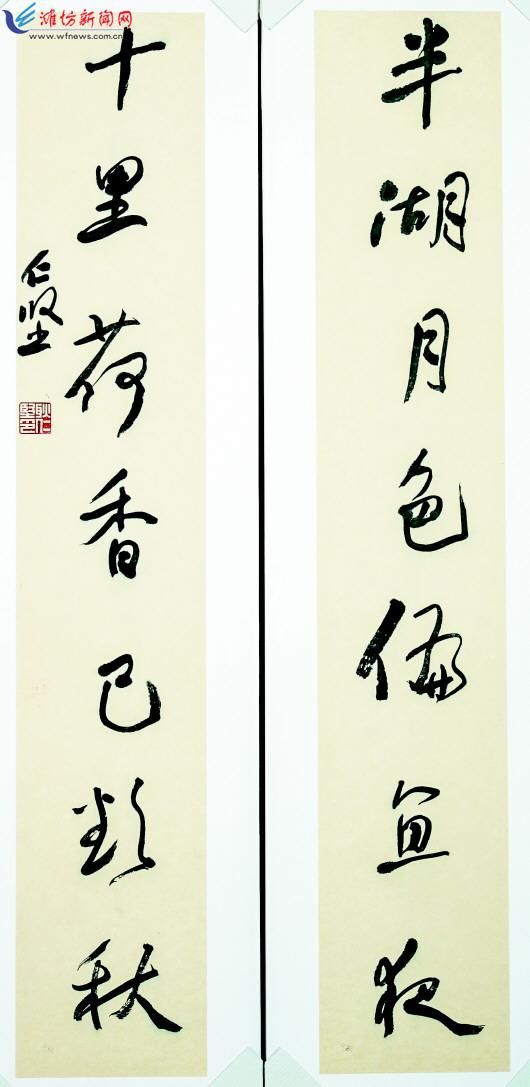 潍坊新闻网
www.wfnews.com.cn
半湖月色偏宜夜
十里荷香已類秋
仁堅